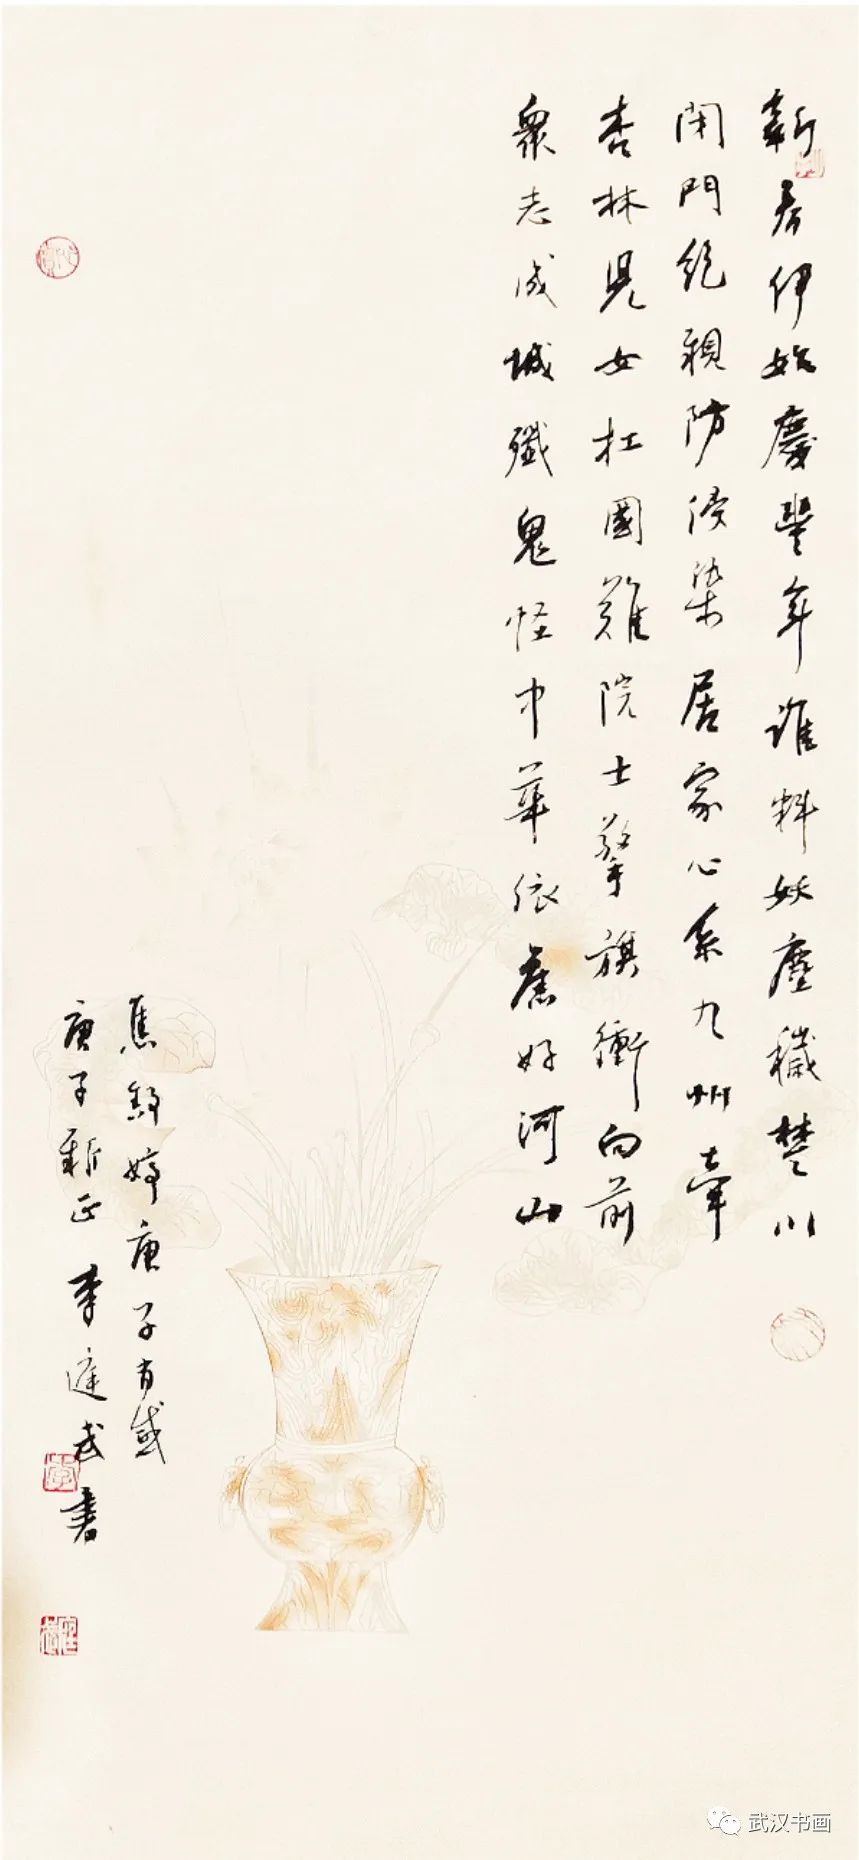 新春伊始慶豐年誰料妖塵穢楚川
閉門絕親防浸染居家心系九州牽
杏林兒女扛國難院士擎旗衝向前
衆志成城殲鬼怪中華依舊好河山
焦婷庚子有感
庚子新正李武書
武汉书画